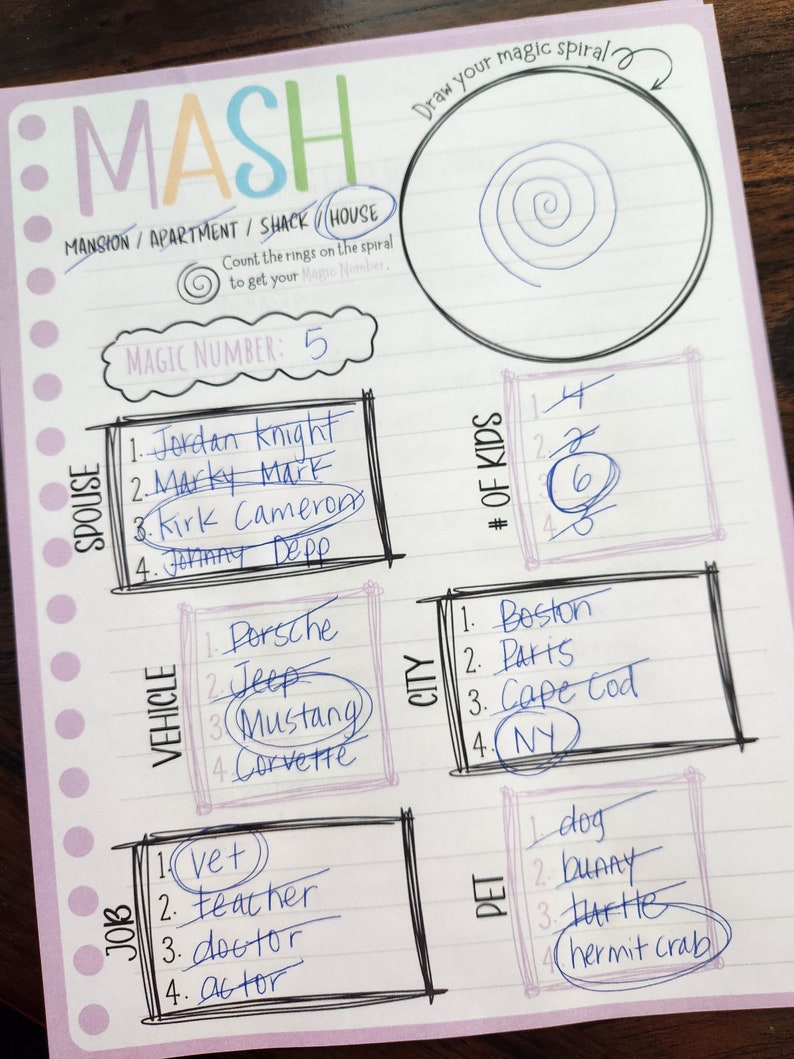 Draw your magic spiral
MASH
MANSION / APARTMENT / SHACK / HOUSE
Count the rings on the spiral
to get your Magic Number.
MAGIC NUMBER: 5
SPOUSE
1. Jordan Knight
2. Marky Mark
3. Kirk Cameron
4. Johnny Depp
# OF KIDS
1. 4
2. 2
3. 6
4.
VEHICLE
1. Porsche
2. Jeep
3. Mustang
4. Corvette
CITY
1. Boston
2. Paris
3. Cape Cod
4. NY
JOB
1. vet
2. teacher
3. doctor
4. actor
PET
1. dog
2. bunny
3. turtle
4. hermit crab